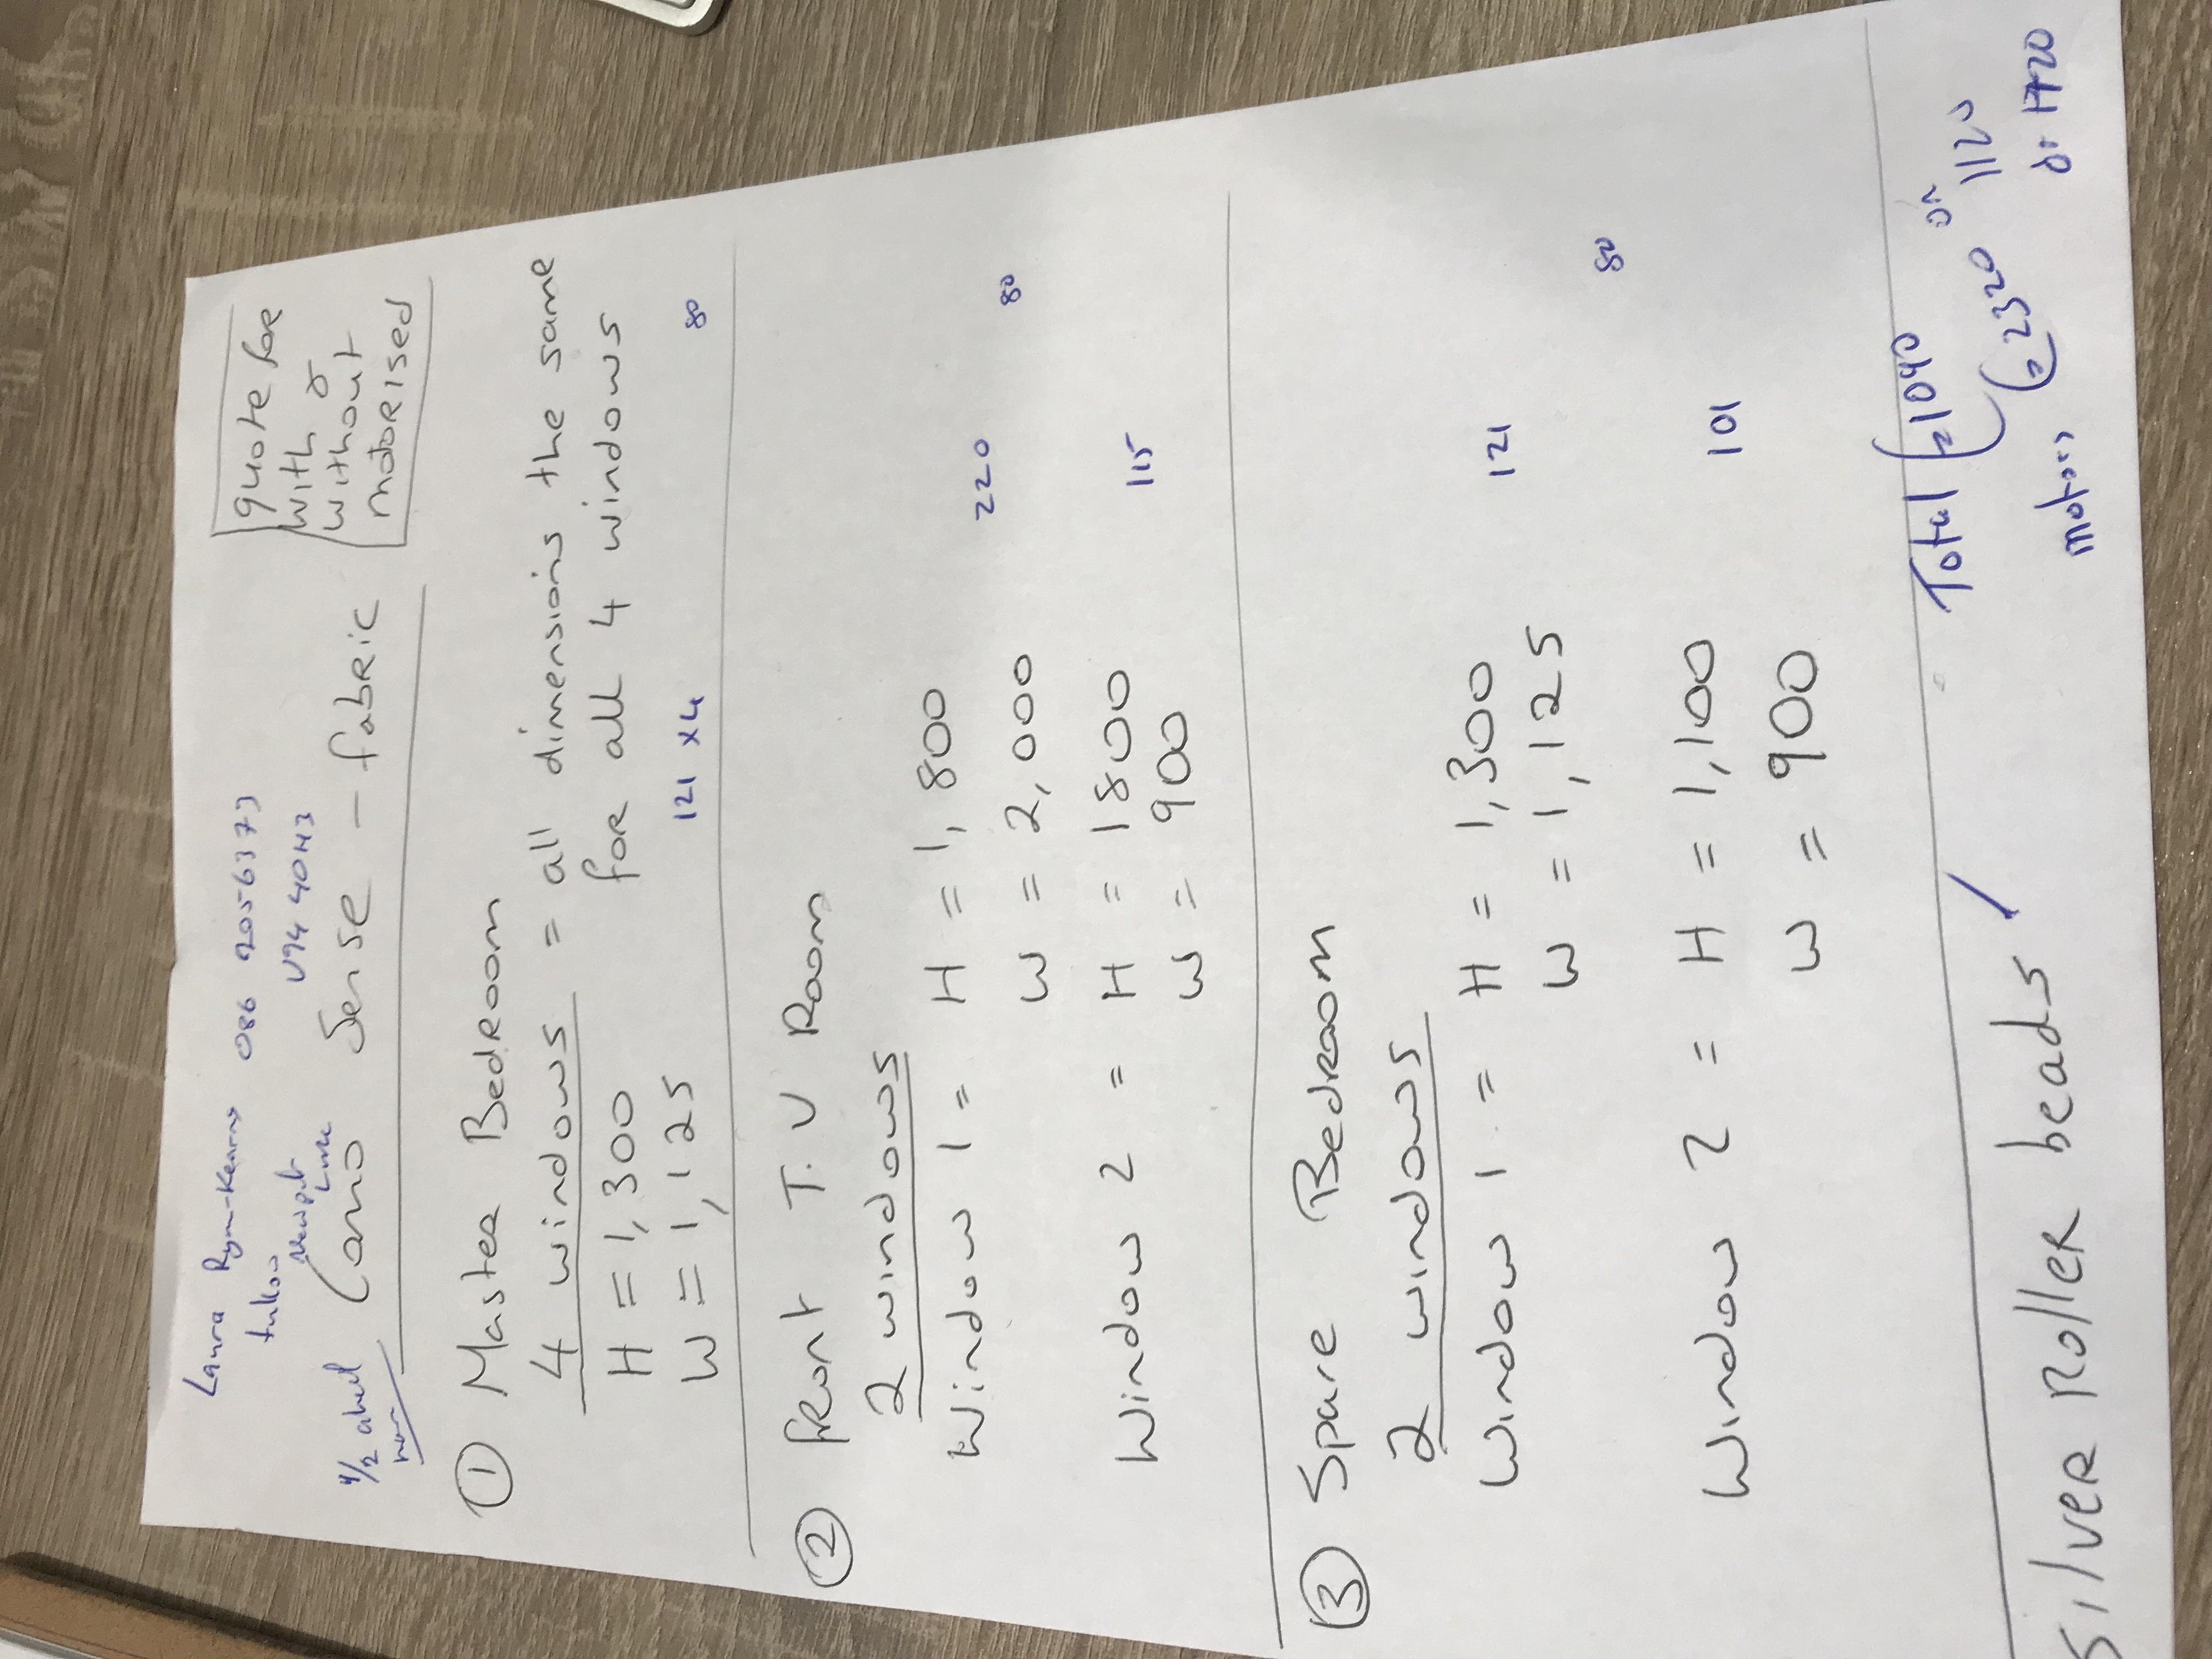 Laura Ryan-Kearns 086 2056373
Newport V94 40H3
quote for
with or
without
motorised
1/2 ahut
Cano Sense - fabric
① Master Bedroom
4 windows = all dimensions the same
for all 4 windows
H = 1,300
W = 1,125 121 x4 80
② Front T.V Room
2 windows
Window 1 = H = 1,800 220
W = 2,000 80
Window 2 = H = 1800 115
W = 900
③ Spare Bedroom
2 windows
Window 1 = H = 1,300 121
W = 1,125 80
Window 2 = H = 1,100 101
W = 900
Total = 1040 or 1120
motors = 2320 or 1720
Silver Roller beads /